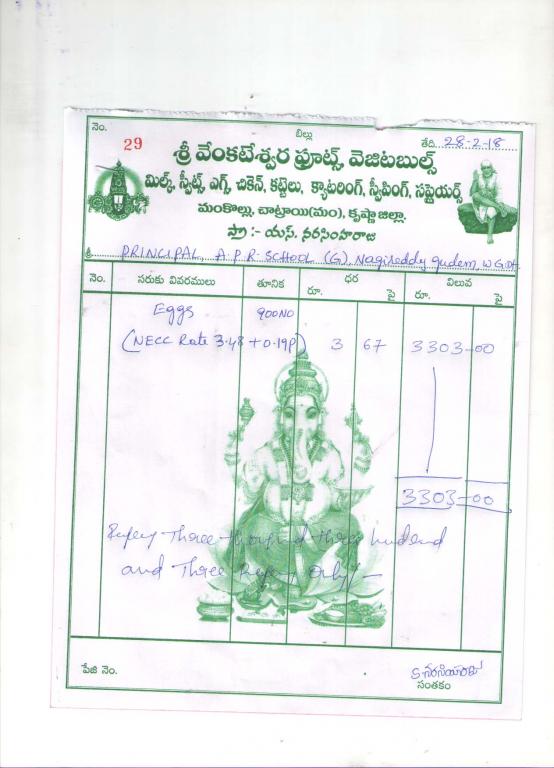 నెం. 29
బిల్లు
తేది. 28-2-18
శ్రీ వేంకటేశ్వర ఫ్రూట్స్, వెజిటబుల్స్
మిల్క్, స్వీట్స్, ఎగ్స్, చికెన్, కట్టెలు, క్యాటరింగ్, స్వీపింగ్, సప్లైయర్స్
మంకొల్లు, చాట్రాయి(మం), కృష్ణా జిల్లా.
ప్రొ :- యస్. నరసింహరాజు
శ్రీ PRINCIPAL, A.P.R. SCHOOL (G), Nagireddy gudem, W.G.Dt.
నెం. సరుకు వివరములు తూనిక ధర విలువ
రూ. పై రూ. పై
Eggs 900 NO
(NECC Rate 3.48 + 0.19P) 3 67 3303-00
3303-00
Rupees Three thousand three hundred
and Three Rupees Only/-
పేజి నెం.
S. నరసింహరాజు
సంతకం